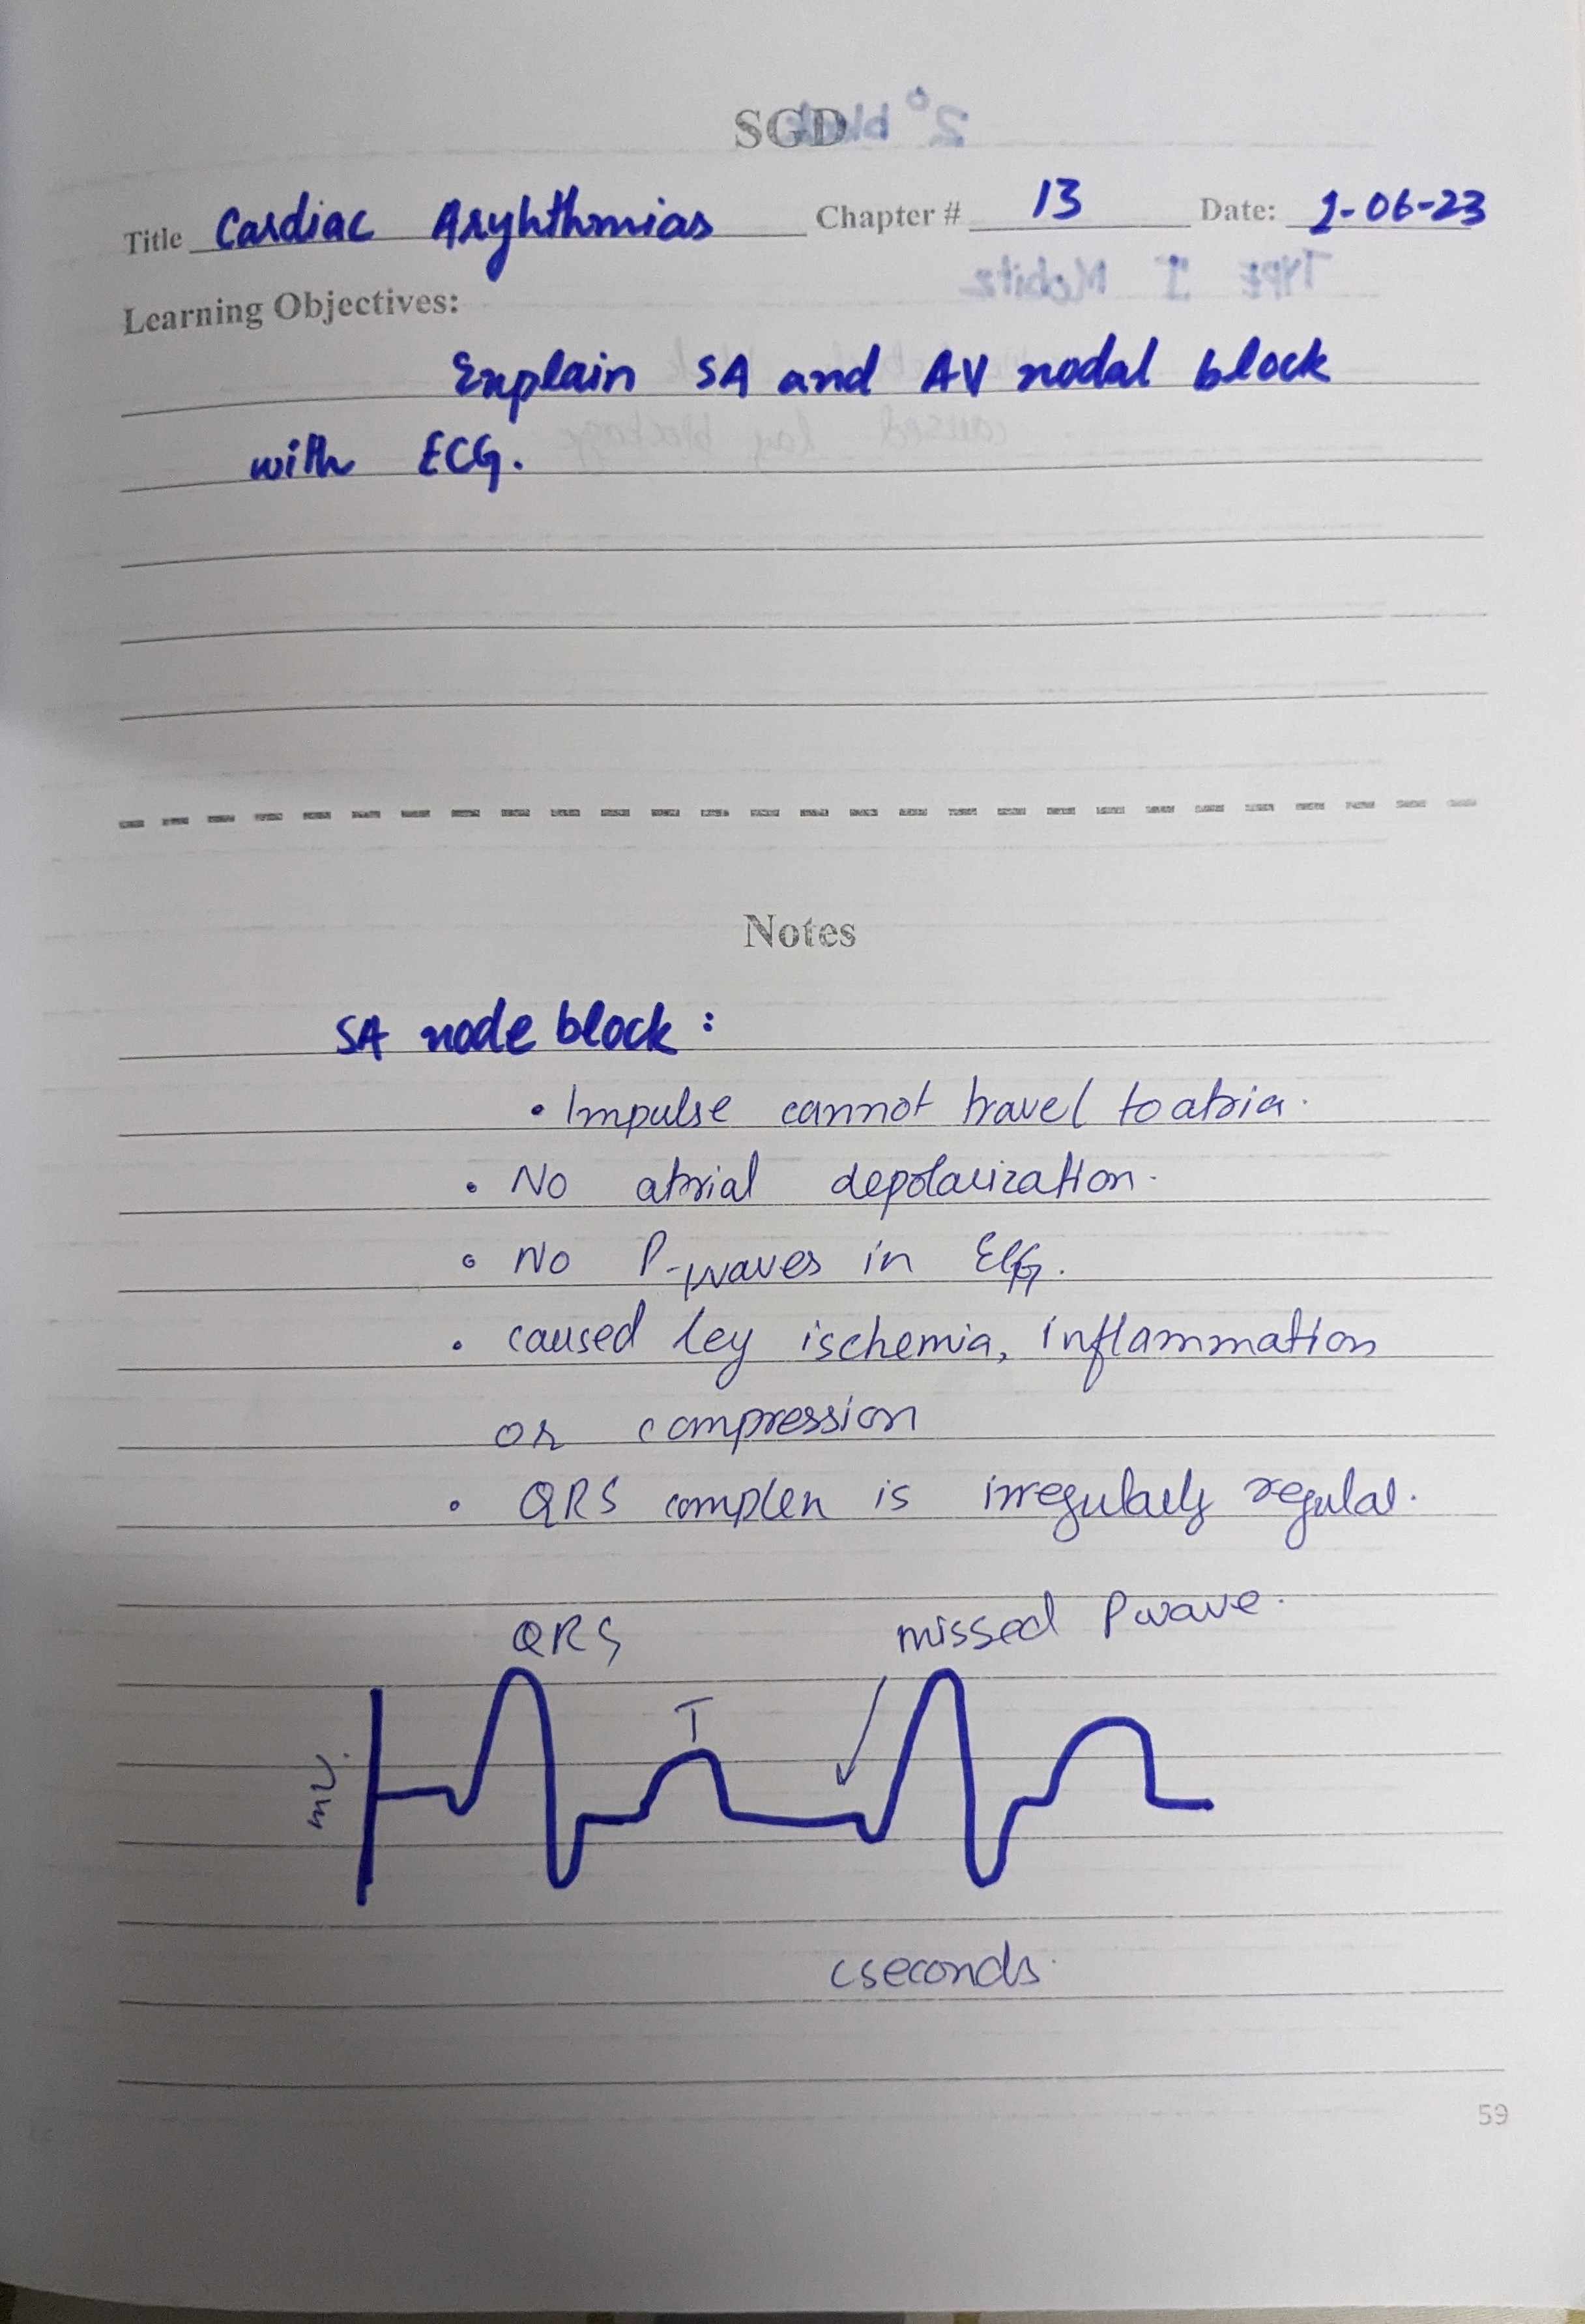 SGD
Title Cardiac Aryhthmias Chapter # 13 Date: 2-06-23
Learning Objectives:
Explain SA and AV nodal block
with ECG.
Notes
SA node block :
• Impulse cannot travel to atria.
• No atrial depolarization.
• No P-waves in ECG.
• caused by ischemia, inflammation
or compression
• QRS complex is irregularly regular.
QRS missed P wave.
T
mV.
seconds.
59